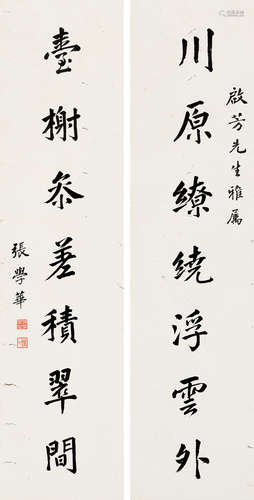 啟芳先生雅属
川原繚繞浮雲外
臺榭叅差積翠間
張學華